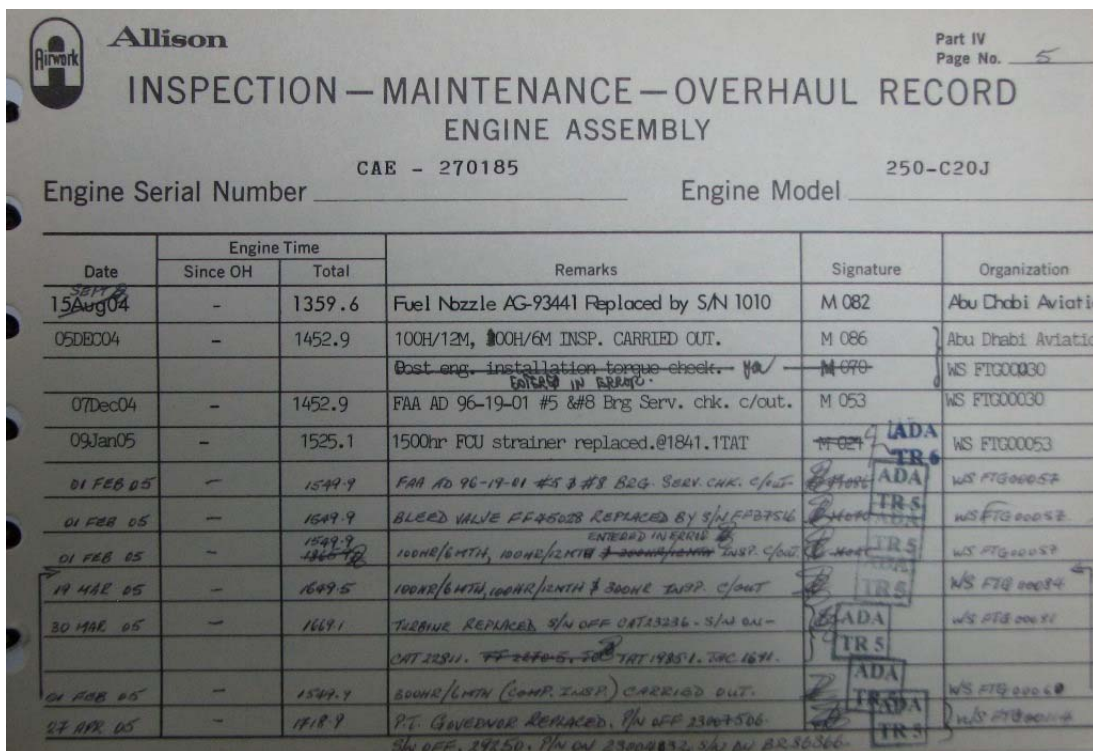 Airwork
Allison
Part IV
Page No. 5
INSPECTION — MAINTENANCE — OVERHAUL RECORD
ENGINE ASSEMBLY
Engine Serial Number CAE - 270185 Engine Model 250-C20J
Engine Time
Date Since OH Total Remarks Signature Organization
SEPT
15Aug04 - 1359.6 Fuel Nozzle AG-93441 Replaced by S/N 1010 M 082 Abu Dhabi Aviati
05DEC04 - 1452.9 100H/12M, 00H/6M INSP. CARRIED OUT. M 086 Abu Dhabi Aviatio
Post eng. installation torque check. M 070 WS FTG00030
ENTERED IN ERROR.
07Dec04 - 1452.9 FAA AD 96-19-01 #5 &#8 Brg Serv. chk. c/out. M 053 WS FTG00030
09Jan05 - 1525.1 1500hr FCU strainer replaced.@1841.1TAT M 021 ADA TR 6 WS FTG00053
01 FEB 05 - 1549.9 FAA AD 96-19-01 #5 & #8 BRG. SERV. CHK. C/OUT. ADA TR 5 WS FTG00057
01 FEB 05 - 1549.9 BLEED VALVE REPLACED BY S/N FF37516 ADA WS FTG00057
1549.9 ENTERED IN ERROR
01 FEB 05 - 100HR/6MTH, 100HR/12MTH & 300HR/12MTH INSP. C/OUT. TR 5 WS FTG00057
19 MAR 05 - 1649.5 100HR/6MTH, 100HR/12MTH & 300HR INSP. C/OUT ADA TR 5 WS FTG 00084
30 MAR 05 - 1669.1 TURBINE REPLACED S/N OFF CAT23236 - S/N ON - ADA TR 5 WS FTG 00091
CAT 22811. TAT 1985.1. TAC 1691.
01 FEB 05 - 1549.9 300HR/6MTH (COMP. INSP.) CARRIED OUT. ADA TR 5 WS FTG 00060
27 APR 05 - 1718.9 P.T. GOVERNOR REPLACED. P/N OFF 23007506. ADA TR 5 WS FTG
S/N OFF. 29250. P/N ON S/N ON BR36366.